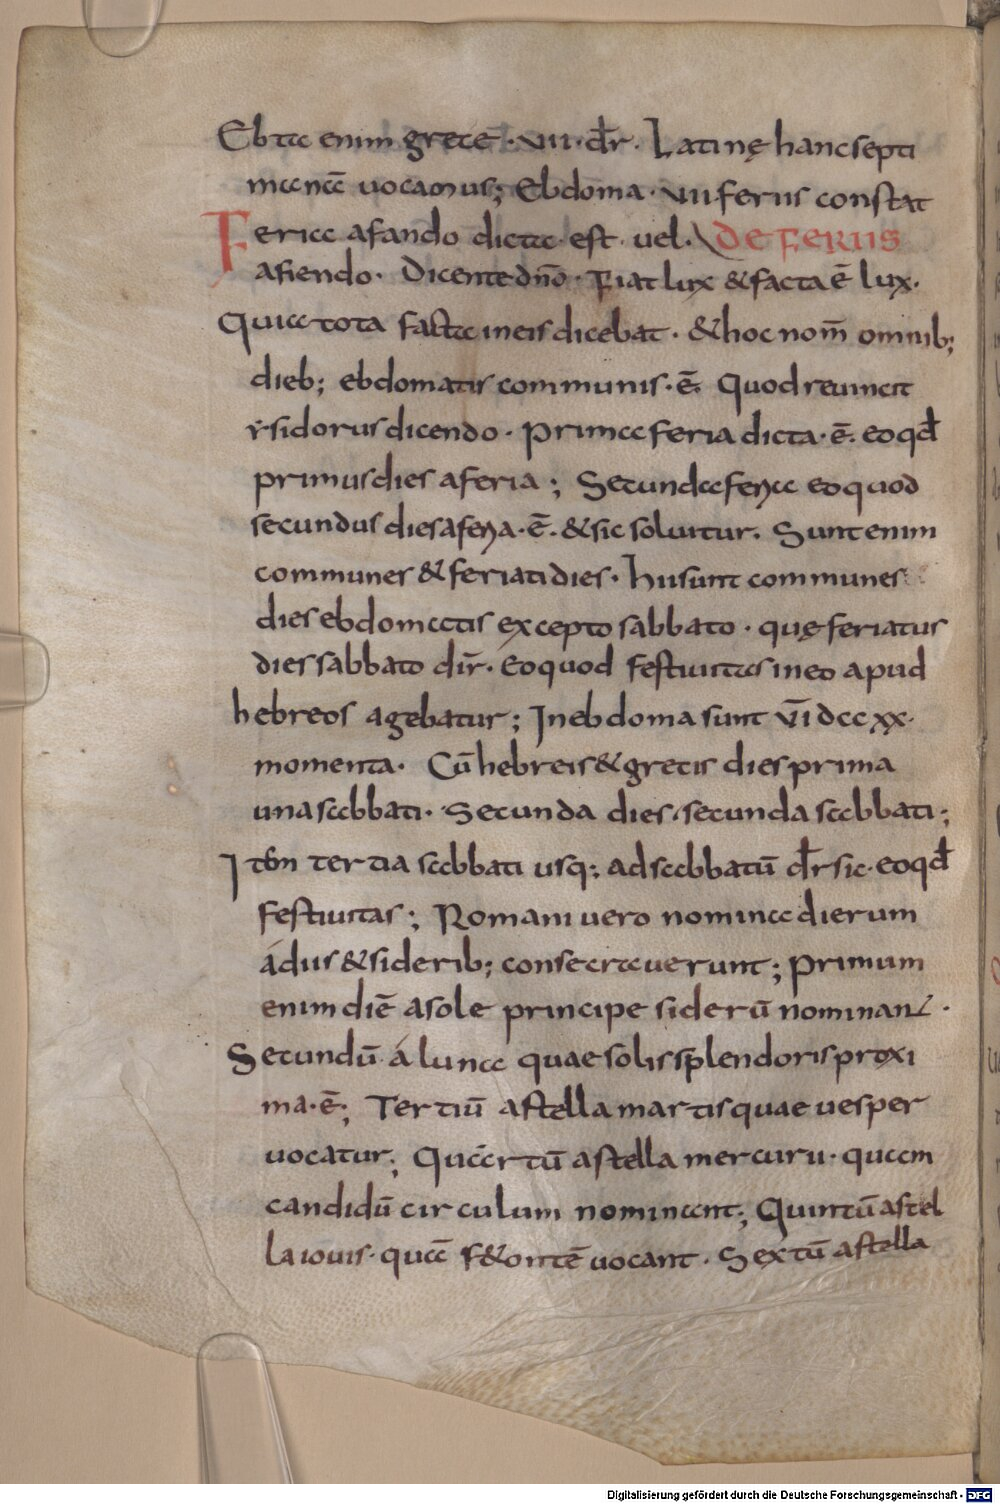 Ebta enim grecẽ · vıı · dr̄. Latinę hancsepti
manã uocamus; Ebdoma · vıı · feriis constat
Feria afando dicta est · uel · \ DE FERIIS
afiendo · Dicente dnō · Fiat lux & facta ē lux ·
Quia tota facta ineis dicebat · & hoc nom̄ omnib;
dieb; ebdomatis communis · ē · Quod reuincit
ysidorus dicendo · prima feria dicta · ē · eo qđ
primus dies aferia ; Secunda feria eo quod
secundus dies aferia · ē · & sic soluitur. Sunt enim
communes & feriati dies · hii sunt communes
dies ebdomatis excepto sabbato · quę feriatus
dies sabbato dir̄ · eo quod festiuitas in eo apud
hebreos agebatur ; In ebdoma sunt v̄ı dcc xx ·
momenta · Cū hebreis & grecis dies prima
una sabbati · Secunda dies · secunda sabbati ;
Item tertia sabbati usq; ad sabbatū dr̄ sic · eo qđ
festiuitas ; Romani uero nomina dierum
ádiis & siderib; consecrauerunt ; primum
enim diē asole principe siderū nominant ·
Secundū á luna quae solis splendoris proxi
ma · ē ; Tertiū astella martis quae uesper
uocatur ; Quartū astella mercurii · quam
candidū circulum nominant ; Quintū astel
la iouis · quā f&ontē uocant · Sextū astella
Digitalisierung gefördert durch die Deutsche Forschungsgemeinschaft - DFG